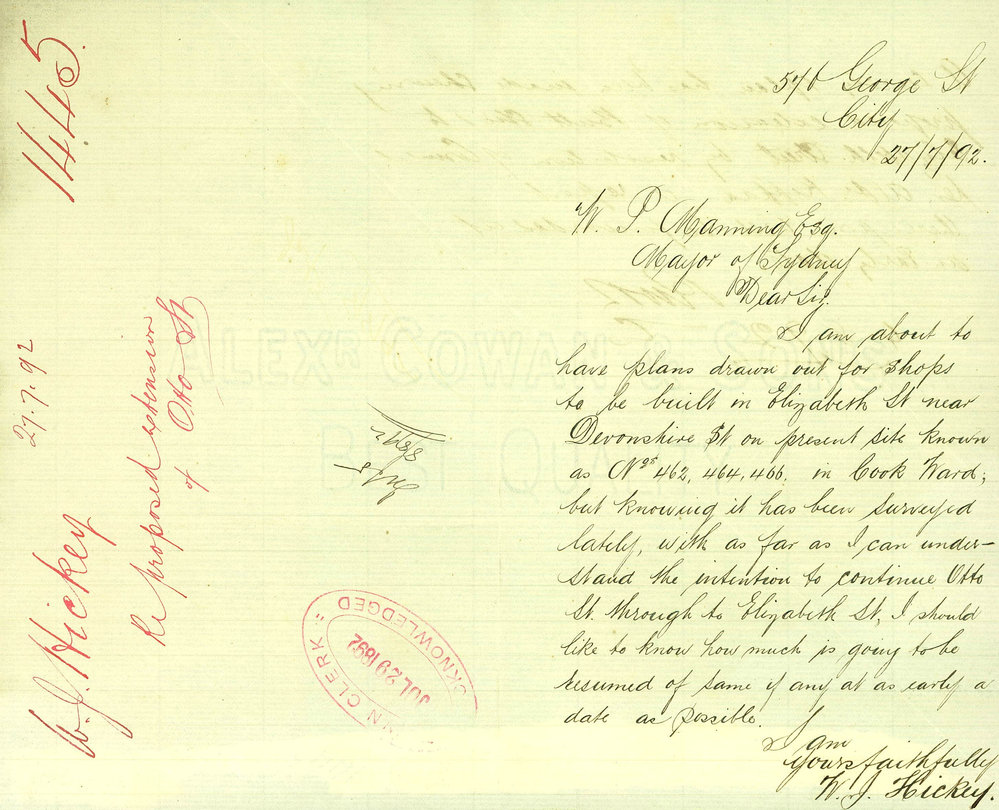 570 George St
City
27/7/92.
W. P. Manning Esq.
Mayor of Sydney
Dear Sir,
I am about to
have plans drawn out for shops
to be built in Elizabeth St near
Devonshire St on present site known
as Nos 462, 464, 466. in Cook Ward;
but knowing it has been surveyed
lately, with as far as I can under-
stand the intention to continue Otto
St. through to Elizabeth St, I should
like to know how much is going to be
resumed of same if any at as early a
date as possible.
I am
yours faithfully
W. J. Hickey.
1445.
27.7.92
W. J. Hickey
Re proposed extension
of Otto St
CLERK "
JUL 29 1892
ALEXR COWAN & SONS